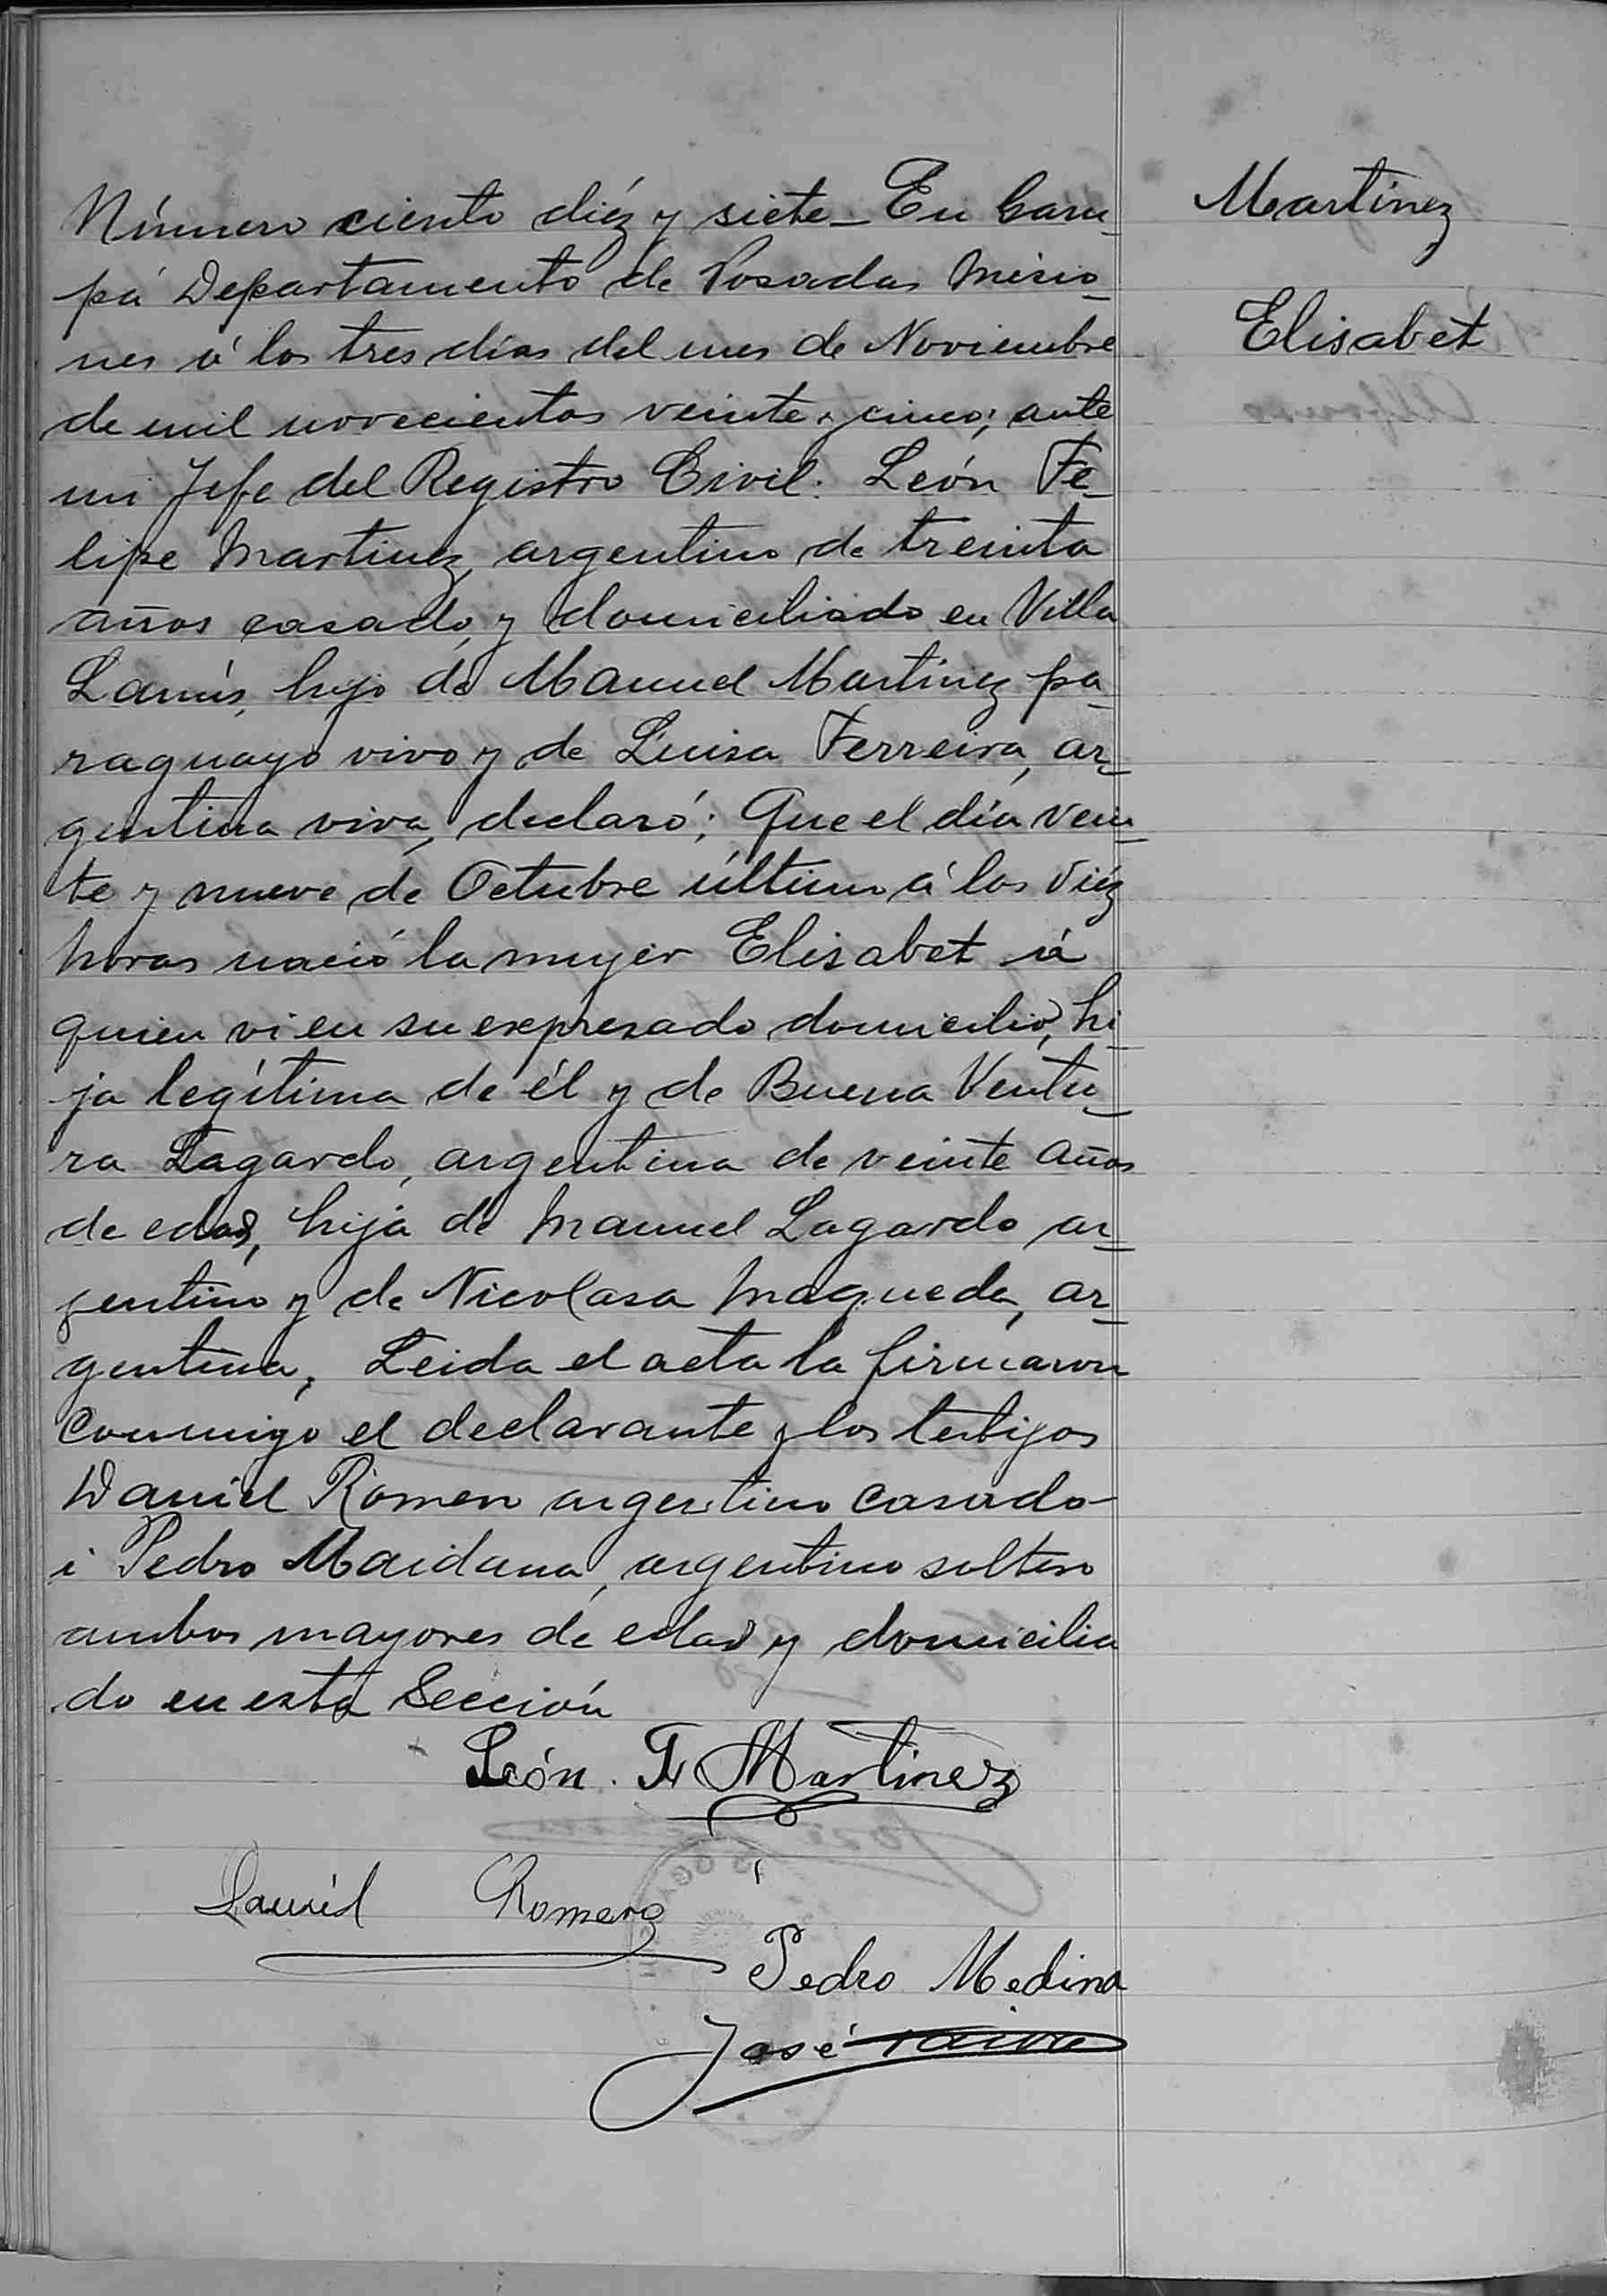 Número ciento diéz y siete_ En Garu_
pá Departamento de Posadas Misio_
nes á los tres días del mes de Noviembre
de mil novecientos veinte y cinco; ante
mi Jefe del Registro Civil: León Fe_
lipe Martinez, argentino de treinta
años casado, y domiciliado en Villa
Lanús, hijo de Manuel Martínez pa_
raguayo vivo y de Luisa Ferreira, ar_
gentina viva, declaró; Que el día vein_
te y nueve de Octubre último á las diéz
horas nació la mujer Elisabet á
quien vi en su expresado domicilio, hi_
ja legítima de él y de Buena Ventu_
ra Lagardo, argentina de veinte años
de edad, hija de Manuel Lagardo ar_
gentino y de Nicolasa Maqueda, ar_
gentina, Leida el acta la firmaron
conmigo el declarante y los testigos
Daniel Romero argentino casado
i Pedro Maidana, argentino soltero
ambos mayores de edad y domicilia
do en esta Sección
León. F. Martinez
Daniel Romero
Pedro Medina
José
Martínez
Elisabet